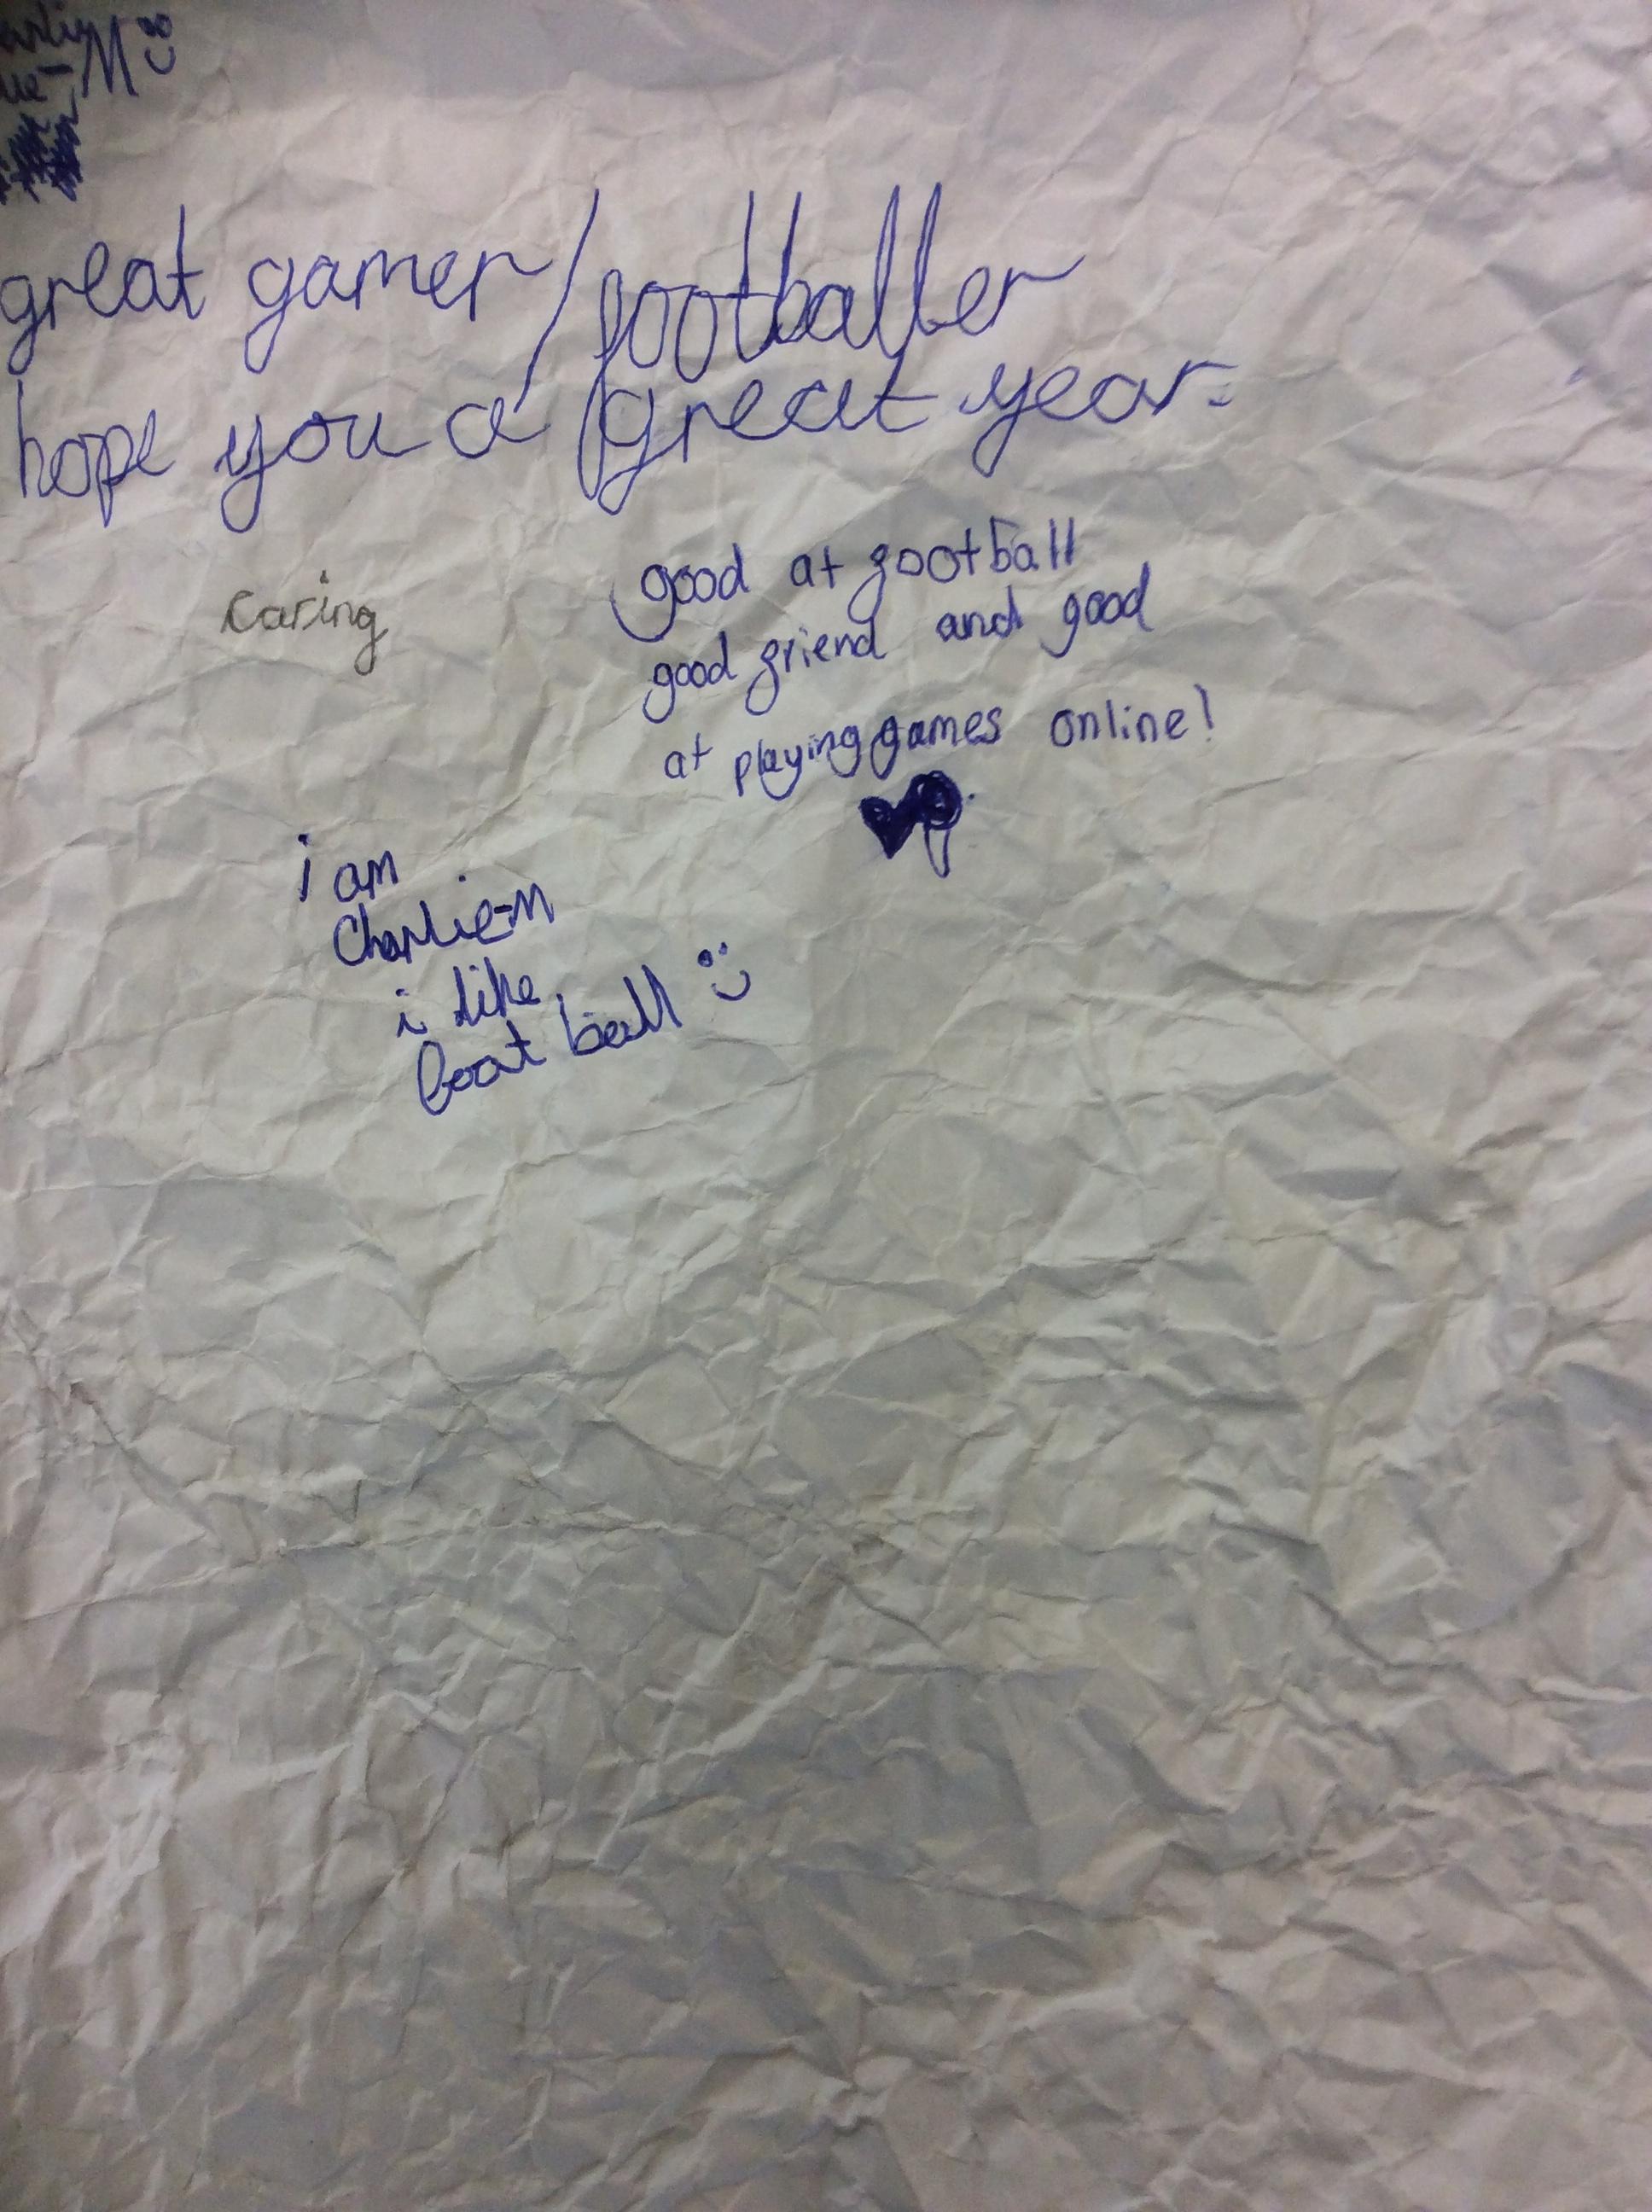 M
great gamer/footballer
hope you a great year.
caring
good at football
good friend and good
at playing games online!
i am
Charlie-M
i like
foot ball